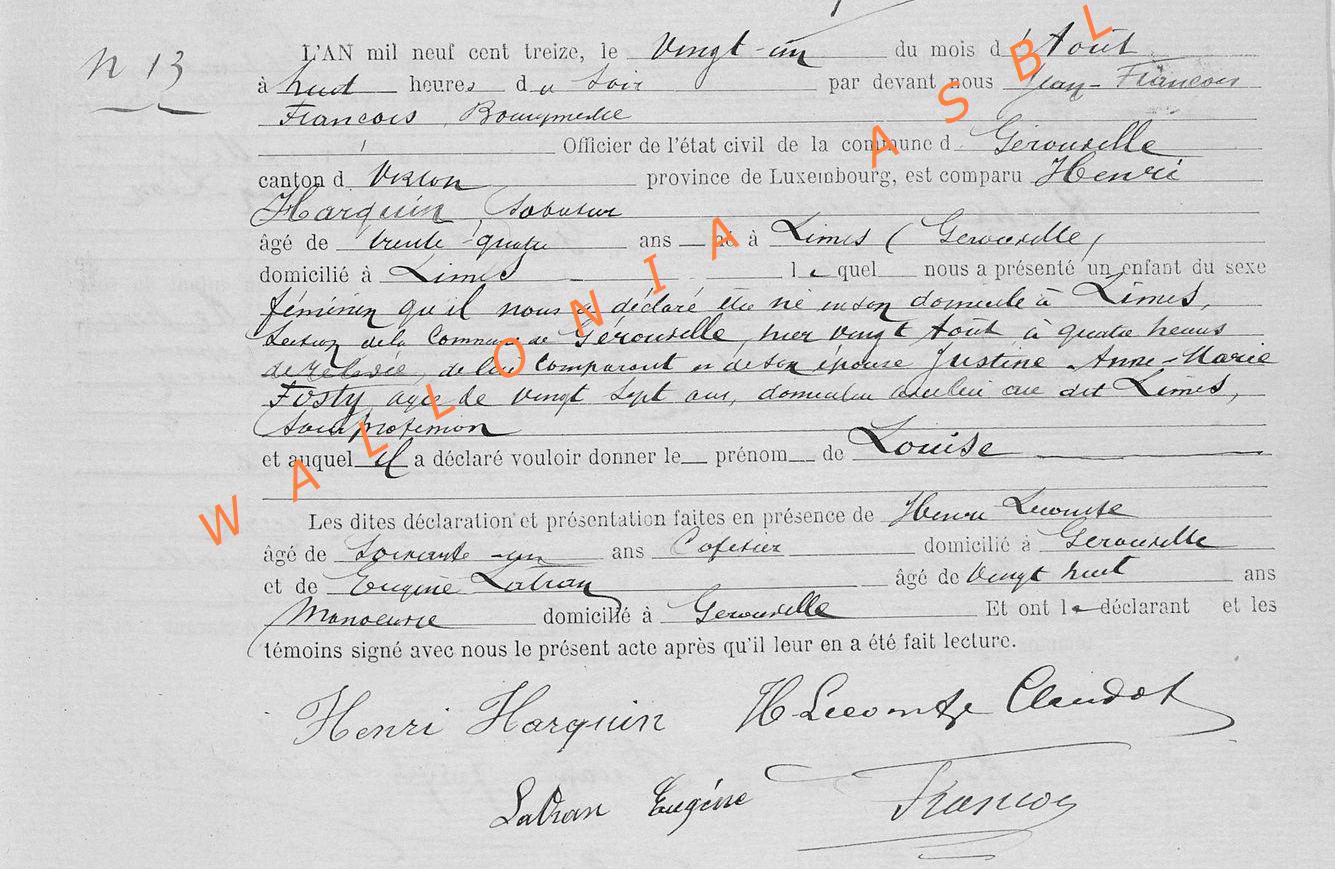 n 13
L'AN mil neuf cent treize, le vingt-un du mois d'Août
à huit heures du soir par devant nous Jean-François
François Bourgmestre
Officier de l'état civil de la commune d Gérouville
canton d Virton province de Luxembourg, est comparu Henri
Harquin, Sabotier
âgé de trente-quatre ans né à Limes (Gérouville)
domicilié à Limes lequel nous a présenté un enfant du sexe
féminin qu'il nous a déclaré être né en son domicile à Limes,
section de la Commune de Gérouville, hier vingt Août à quatre heures
de relevée, de lui comparant et de son épouse Justine Anne-Marie
Fosty âgée de vingt sept ans, domiciliée avec lui au dit Limes,
sans profession
et auquel il a déclaré vouloir donner le prénom de Louise
Les dites déclaration et présentation faites en présence de Henri Lecomte
âgé de soixante-un ans Cafetier domicilié à Gérouville
et de Eugène Latran âgé de vingt huit ans
Manoeuvre domicilié à Gérouville Et ont le déclarant et les
témoins signé avec nous le présent acte après qu'il leur en a été fait lecture.
Henri Harquin H Lecomte Claudot
Latran Eugène François
WALLONIA ASBL